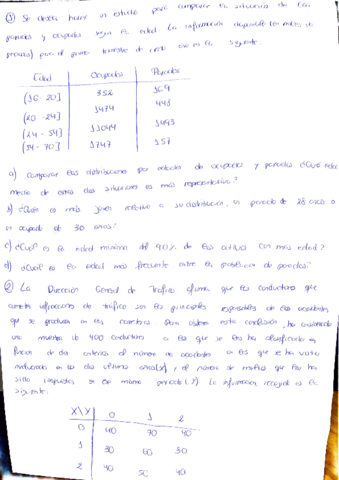 ① Se desea hacer un estudio para comparar la situación de los
parados y ocupados según la edad. La información disponible (en miles de
personas) para el primer trimestre de cierto año es la siguiente:
Edad Ocupados Parados
(16 - 20] 352 169
(20 - 24] 1474 448
(24 - 54] 13044
(54 - 70] 1747 157
a) comparar las distribuciones por edades de ocupados y parados ¿Qué edad
media de estas dos situaciones es más representativa?
b) ¿Quién es más joven relativo a su distribución, un parado de 28 años o
un ocupado de 30 años?
c) ¿Cuál es la edad mínima del 90% de los activos con más edad?
d) ¿Cuál es la edad más frecuente entre la población de parados?
② La Dirección General de Tráfico afirma que los conductores que
cometen infracciones de tráfico son los principales responsables de los accidentes
que se producen en las carreteras. Para obtener esta conclusión, ha examinado
una muestra de 400 conductores a los que se les ha clasificado en
función de dos criterios: el número de accidentes en los que se ha visto
involucrado en los dos últimos años (X) y el número de multas que les han
sido impuestas en ese mismo periodo (Y). La información recogida es la
siguiente:
X\Y 0 1 2
0 40 70 40
1 30 60 30
2 40 50 40